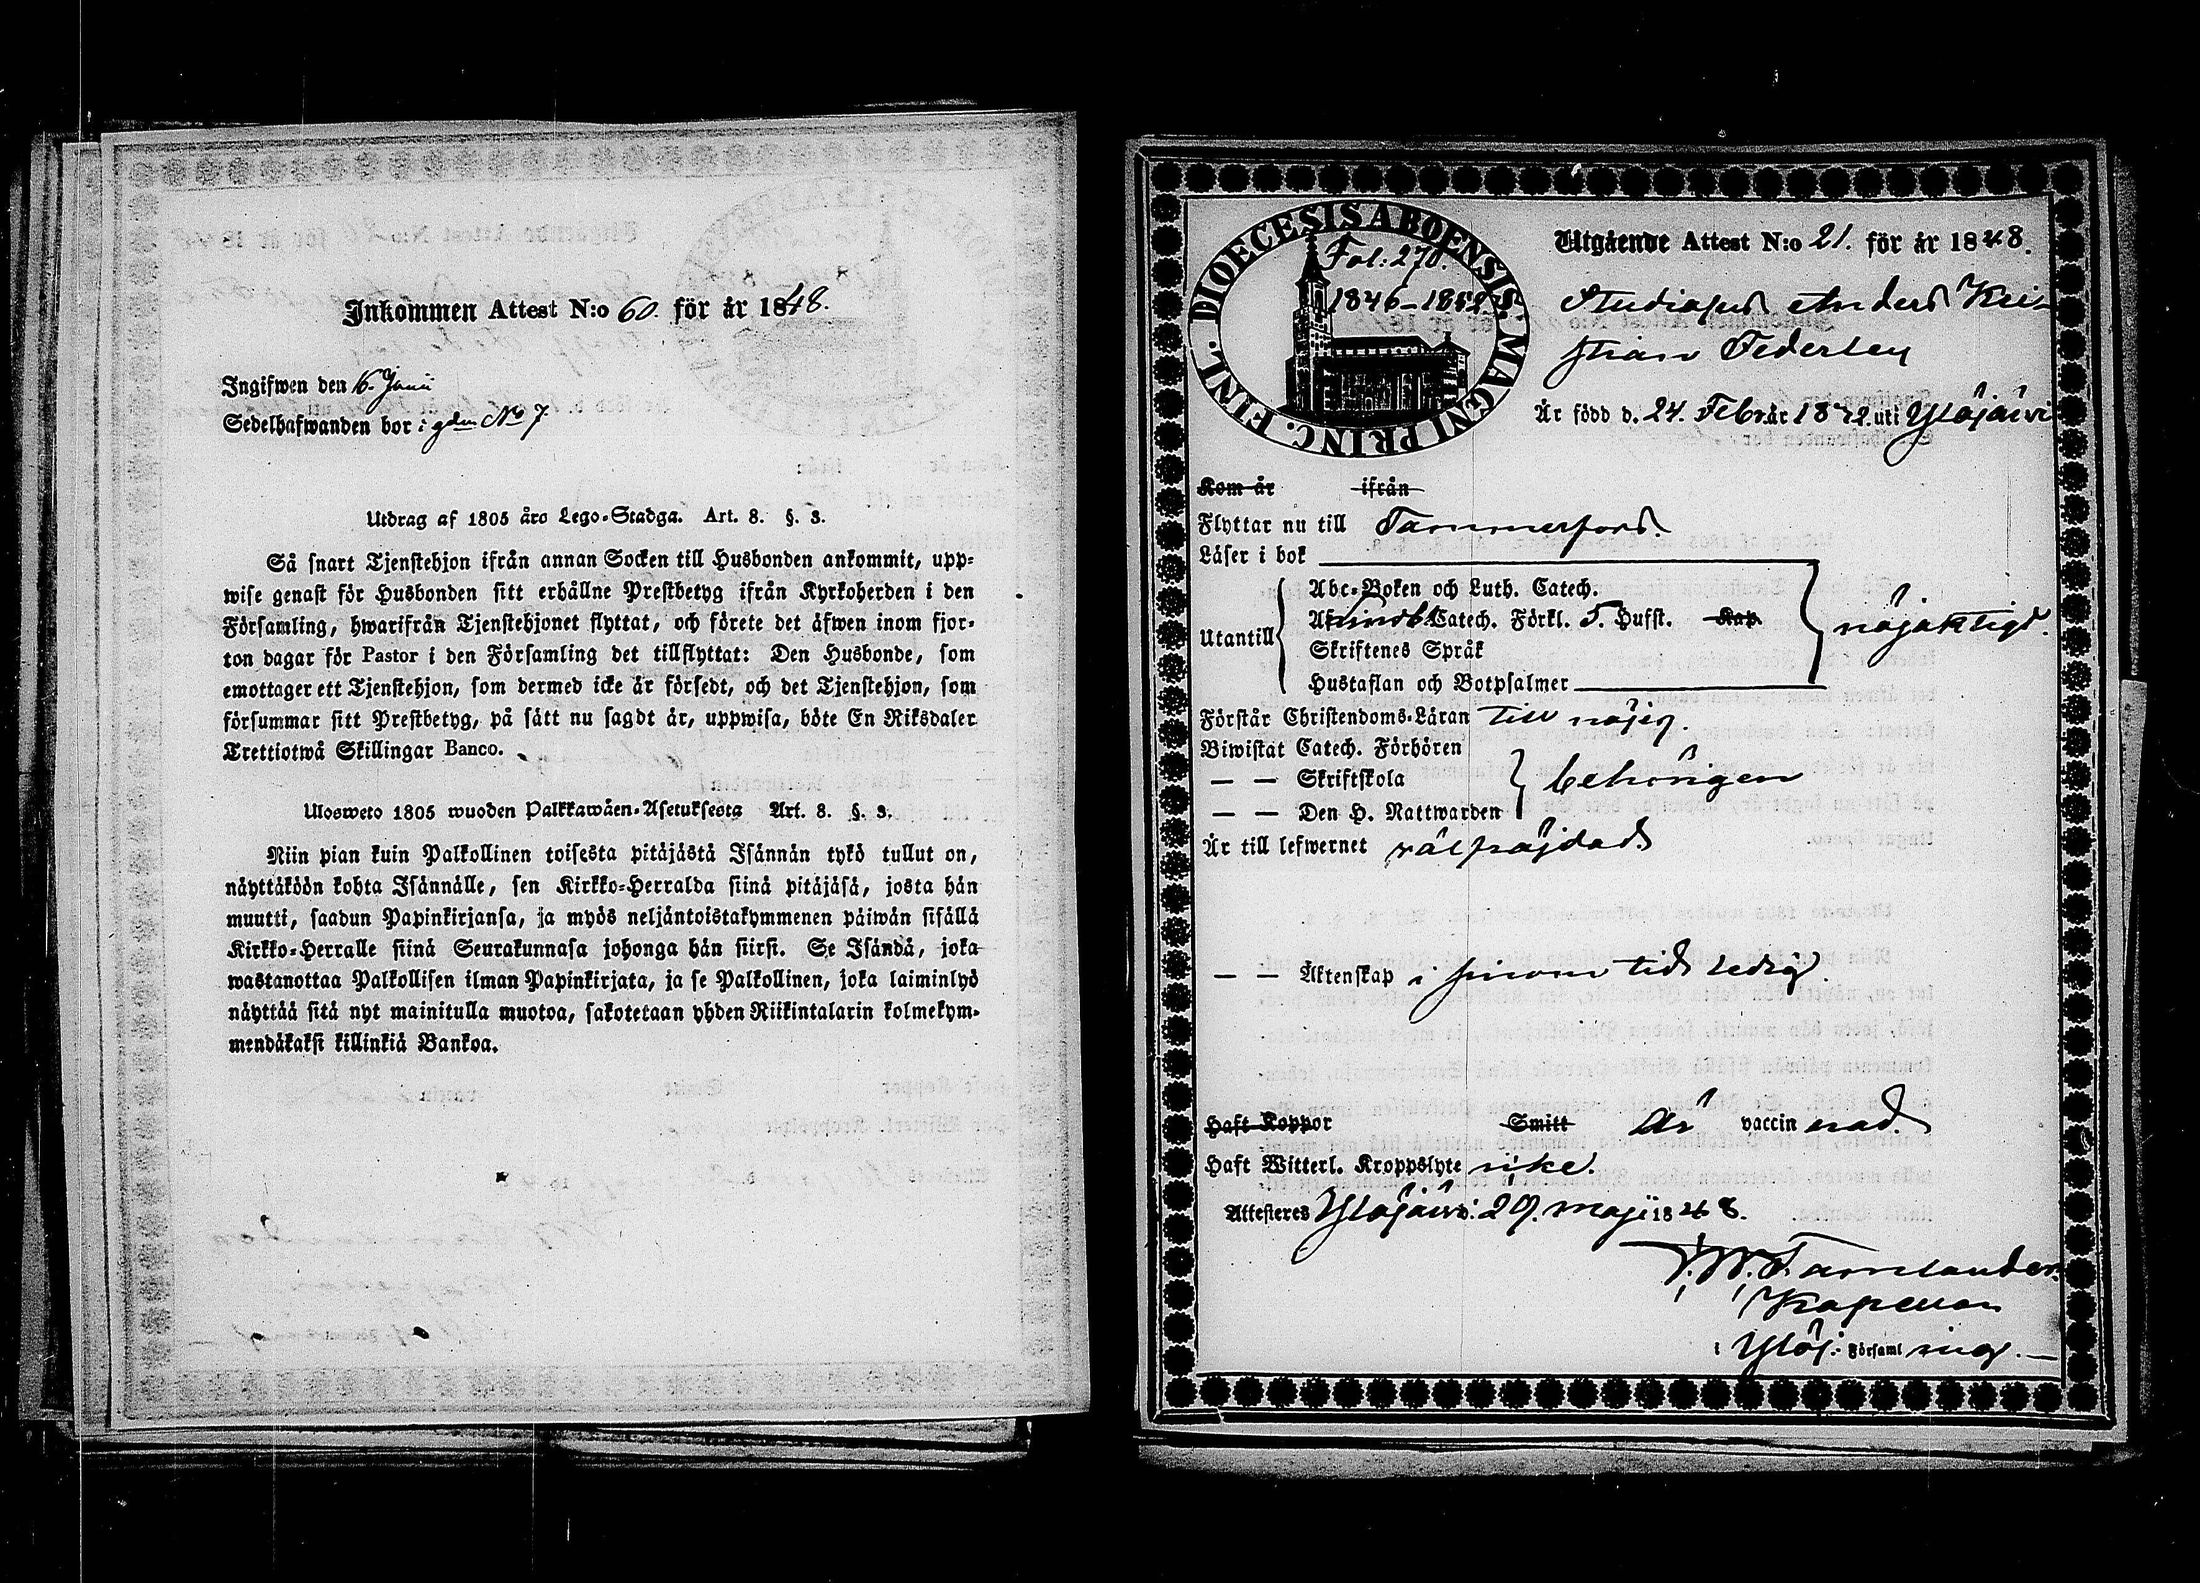 Inkommen Attest N:o 60. för år 1848.
Ingifwen den 16. Junii
Sedelhafwanden bor i gden No 7
Utdrag af 1805 års Lego-Stadga. Art. 8. §. 3.
Så snart Tjenstehjon ifrån annan Socken till Husbonden ankommit, upp-
wise genast för Husbonden sitt erhållne Prestbetyg ifrån Kyrkoherden i den
Församling, hwarifrån Tjenstehjonet flyttat, och förete det äfwen inom fjor-
ton dagar för Pastor i den Församling det tillflyttat: Den Husbonde, som
emottager ett Tjenstehjon, som dermed icke är försedt, och det Tjenstehjon, som
försummar sitt Prestbetyg, på sätt nu sagdt är, uppwisa, böte En Riksdaler
Trettiotwå Skillingar Banco.
Ulosweto 1805 wuoden Palkkawäen-Asetuksesta Art. 8. §. 3.
Niin pian kuin Palkollinen toisesta pitäjästä Isännän tykö tullut on,
näyttäköön kohta Isännälle, sen Kirkko-Herralda siinä pitäjäsä, josta hän
muutti, saadun Papinkirjansa, ja myös neljäntoistakymmenen päiwän sisällä
Kirkko-Herralle siinä Seurakunnasa johonga hän siirsi. Se Isändä, joka
wastanottaa Palkollisen ilman Papinkirjata, ja se Palkollinen, joka laiminlyö
näyttää sitä nyt mainitulla muotoa, sakotetaan yhden Riikintalarin kolmekym-
mendäkaksi killinkiä Bankoa.
DIOECESIS ABOENSIS MAGNI PRINC. FINL.
Fol: 270.
1846-1852
Utgående Attest N:o 21. för år 1848.
Studiosus Anders Kri-
stian Federley
Är född d. 24. Febr. år 1822. uti Ylöjärvi
Kom år ifrån
Flyttar nu till Tammerfors.
Läser i bok
Utantill
Abc-Boken och Luth. Catech.
Catech. Förkl. 5. Hufst. Kap.
Skriftenes Språk
Hustaflan och Botpsalmer
nöjaktigt.
Förstår Christendoms-Läran till nöjes.
Biwistat Catech. Förhören
— — Skriftskola
— — Den H. Nattwarden
behörigen
Är till lefwernet välfräjdad.
— — Äktenskap i sinom tid ledig.
Haft Koppor Smitt Är vaccinerad.
Haft Witterl. Kroppslyte icke.
Attesteres Ylöjärvi 29. maji 1848.
Kapellan
i Ylöj: Församling.